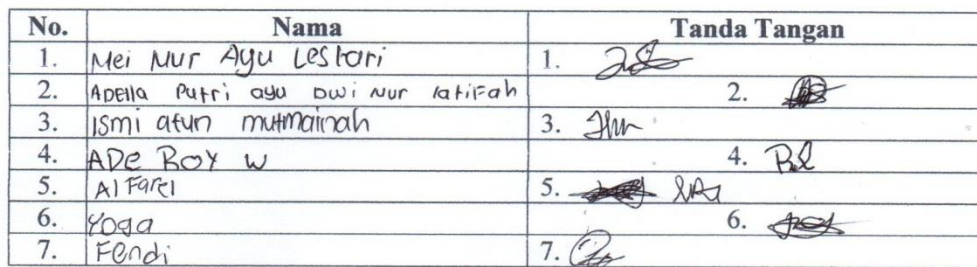 No. Nama Tanda Tangan
1. Mei Nur Ayu Lestari 1.
2. Adella Putri ayu Dwi Nur latifah 2.
3. Ismi atun mutmainah 3.
4. ADe Roy W 4.
5. Al Farel 5.
6. Yoga 6.
7. Fendi 7.